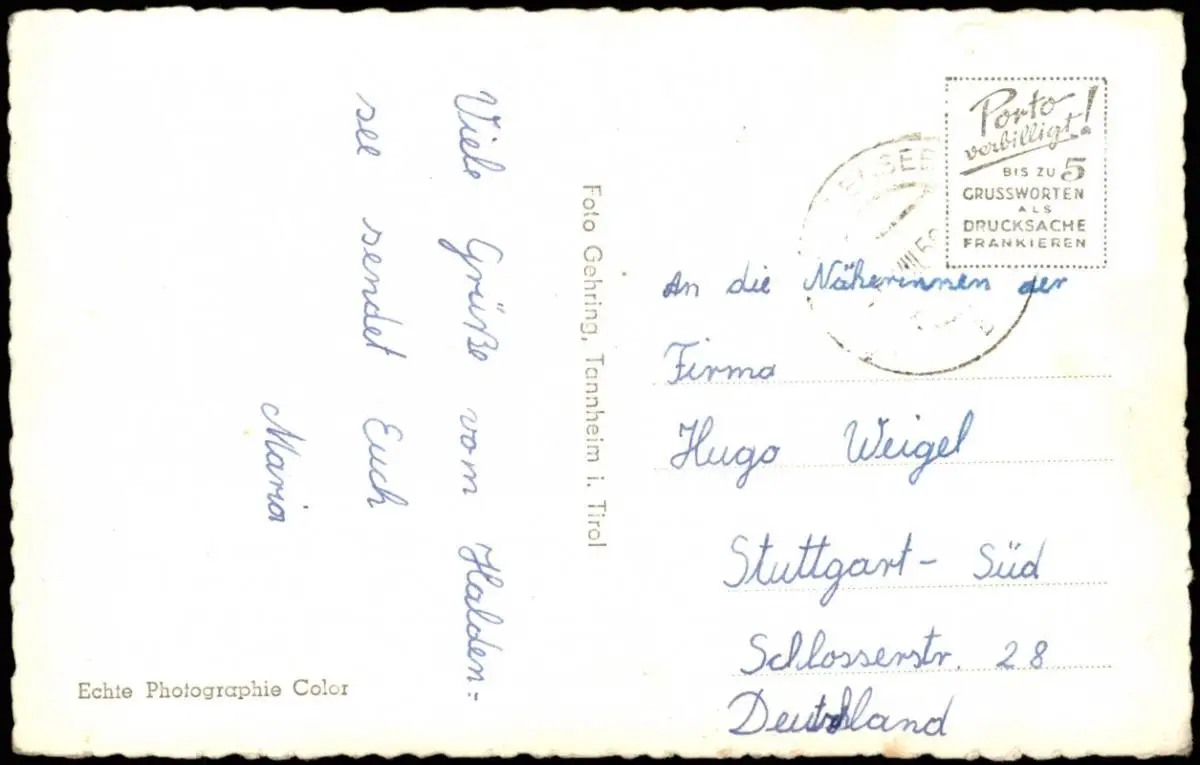 Viele Grüße vom Halden=
see sendet Euch
Maria
Echte Photographie Color
Foto Gehring, Tannheim i. Tirol
Porto
verbilligt!
BIS ZU 5
GRUSSWORTEN
ALS
DRUCKSACHE
FRANKIEREN
An die Näherinnen der
Firma
Hugo Weigel
Stuttgart- Süd
Schlosserstr. 28
Deutschland